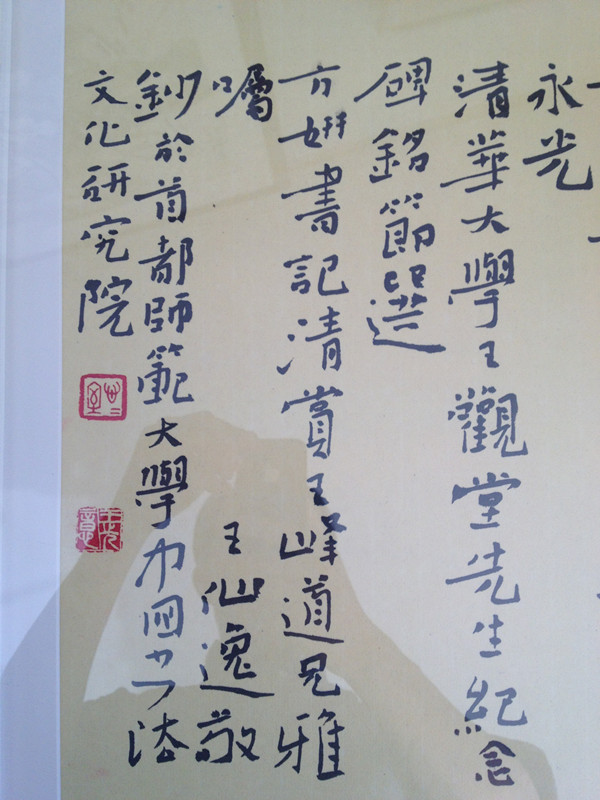 永光
清華大學王觀堂先生紀念
碑銘節選
方姸書記清賞王峰道兄雅
囑 王仙逸敬
鈔於首都師範大學中國书法
文化研究院